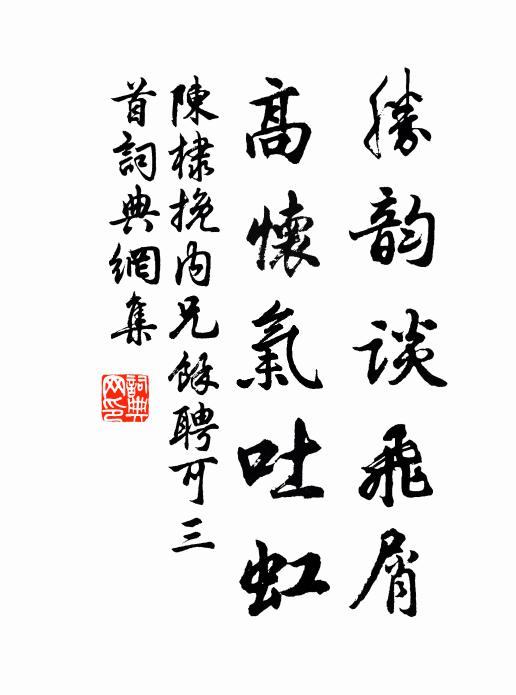 勝韵談飛屑
高懷氣吐虹
陳棣挽内兄餘聘可三
首詞典網集
詞典
网印